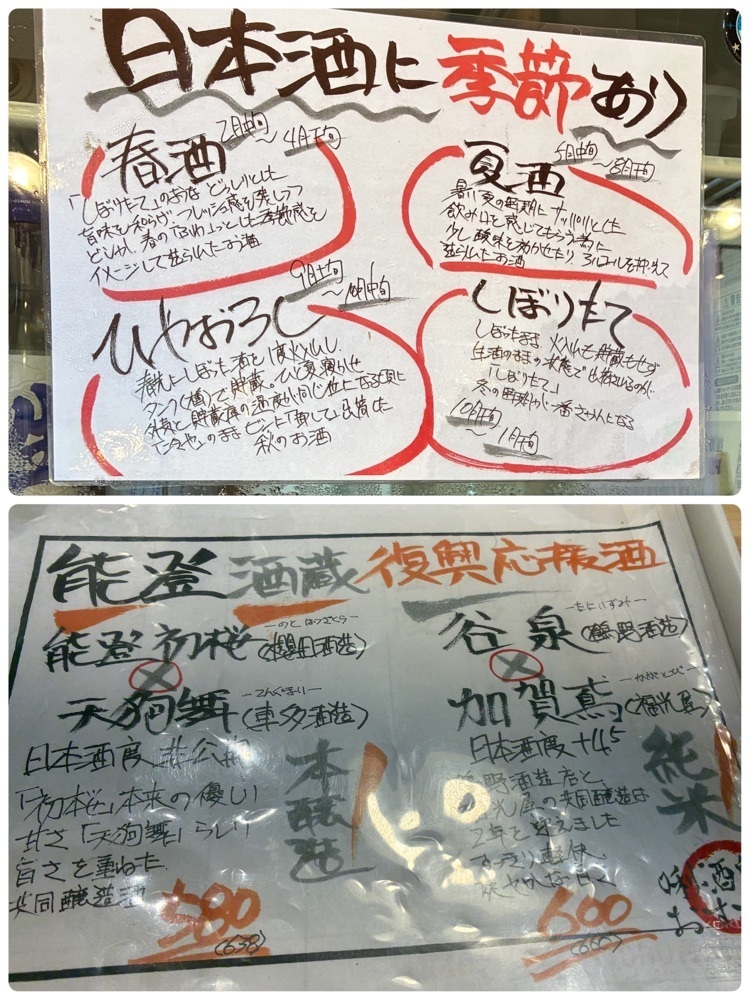 日本酒に季節あり
春酒
2月中旬
～4月下旬
「しぼりたて」のような どっしりとした
旨味を和らげ フレッシュ感を残しつつ
春の「ふわっ」とした季節感を
イメージして造られたお酒
夏酒
5月中旬
～8月下旬
暑い夏の時期に サッパリとした
飲み口を感じてもらう為に
少し酸味を効かせたり アルコールを抑えて
造られたお酒
ひやおろし
9月上旬
～10月中旬
春先にしぼった酒を1度火入れし、
タンク(樽)で貯蔵。ひと夏寝かせ
外気と貯蔵庫の温度が同じ位になる頃に
ビンに「卸して」出荷した
秋のお酒
しぼりたて
しぼったまま 火入れも貯蔵もせず
生酒のままの状態で出荷されるのが
「しぼりたて」
冬の時期が一番さかんになる
10月中旬
～1月下旬
能登酒蔵復興応援酒
―のと はつざくら―
能登初桜(櫻田酒造)
×
―てんぐまい―
天狗舞(車多酒造)
日本酒度 非公開
「初桜」本来の優しい
甘さ「天狗舞」らしい
旨さを重ねた
共同醸造酒
本醸造
580
(638)
―たにいずみ―
谷泉(鶴野酒造)
×
―かがとび―
加賀鳶(福光屋)
日本酒度+4.5
鶴野酒造店と
福光屋の共同醸造は
2年を迎えました
すっきり軽快
純米
600
(660)